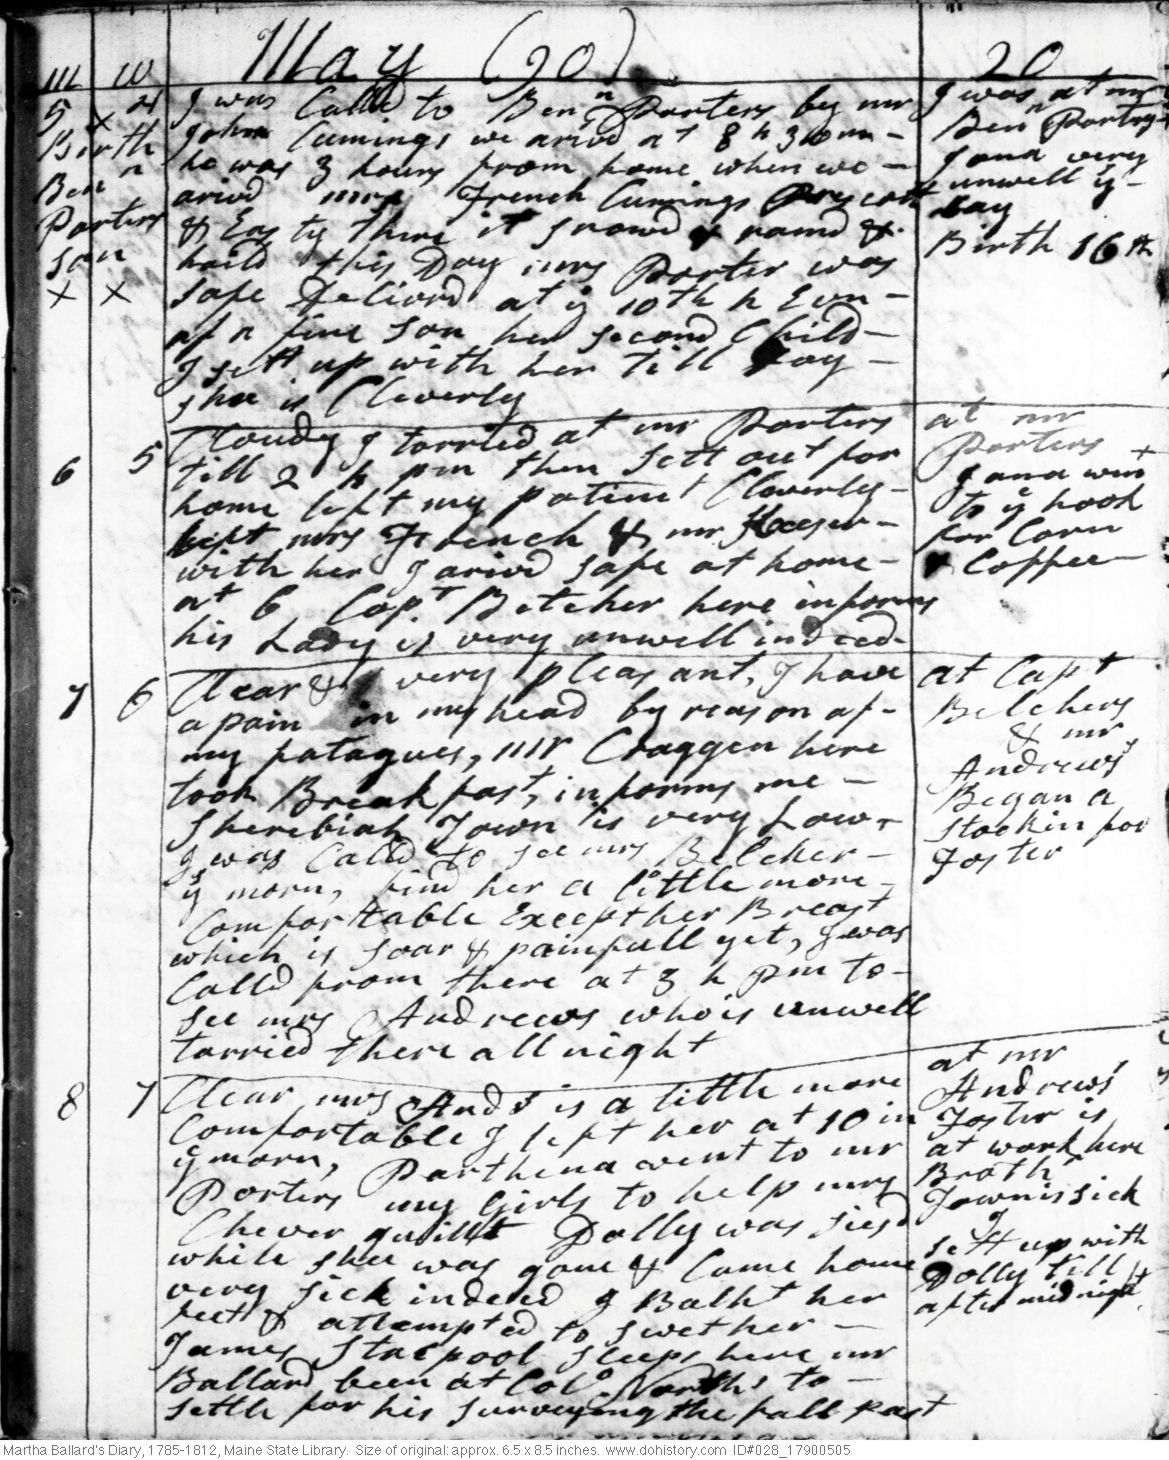 M W May (90) 20
5 x 4
Birth
Benn
Porters
son
x x
I was Calld to Benn Porters by mr
John Cumings we arivd at 8 h 30 m -
he was 3 hours from home when we -
arivd mrs French Cumings Prescott
& Easty there it snowd & raind &
haild this Day mrs Porter was
safe Deliverd at ÿ 10th h Evn -
of a fine son her second Child -
I sett up with her till Day -
shee is Cleverly
I was at mr
Benn Porters
Jona very
unwell ÿ -
Day
Birth 16th
6 5
Cloudy I tarried at mr Porters
till 2 h pm then sett out for
home left my patient Cleverly -
left mrs French & mr
with her I arivd safe at home -
at 6 Capt Belcher here informs
his Lady is very unwell indeed.
at mr
Porters
Jona went
to ÿ hook
for Corn
& Coffee -
7 6
Clear & very pleasant, I have
a pain in my head by reason of -
my fatagues, mr Craggen here
took Breakfast, informs me -
Sherebiah Town is very Low,
I was Calld to see mrs Belcher -
ÿ morn, find her a little more
Comfortable Except her Breast
which is soar & painfull yet, I was
Calld from there at 3 h pm to -
see mrs Andrews who is unwell
tarried there all night
at Capt
Belchers
& mr
Andrews'
Began a
stockin for
Foster
8 7
Clear mrs Ands is a little more
Comfortable I left her at 10 in
ÿ morn, Parthena went to mr
Porters my Girls to help mrs
Chever quillt Dolly was siesd
while shee was gone & Came home
very sick indeed I Batht her
feet & attempted to swet her -
James Stacpool sleeps here mr
Ballard been at Colo Norths to -
settle for his surveying the fall past
at mr
Andrews'
Foster is
at work here
Brothr
Town is sick
I
sett up with
Dolly till
after midnight
Martha Ballard's Diary, 1785-1812, Maine State Library. Size of original: approx. 6.5 x 8.5 inches. www.dohistory.com ID#028_17900505